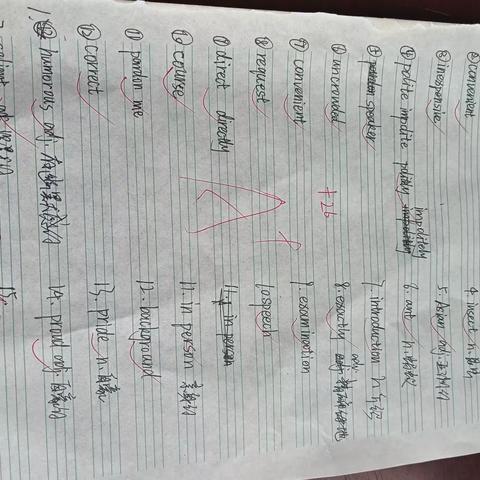 convenient
inexpensive
④ polite impolite politely impolitely
speaker
⑥ uncrowded
⑦ convenient
⑧ request
⑨ direct directly
⑩ course
⑪ pardon me
⑫ correct
1. humorous adj.
+26
4. insect n. 昆虫
5. Asian adj. 亚洲的
6. ants n.
7. introduction n. 介绍
8. exactly adv.
9. examination
10. speech
11. in person
12. background
13. pride n. 自豪
14. proud adj. 自豪的
15.